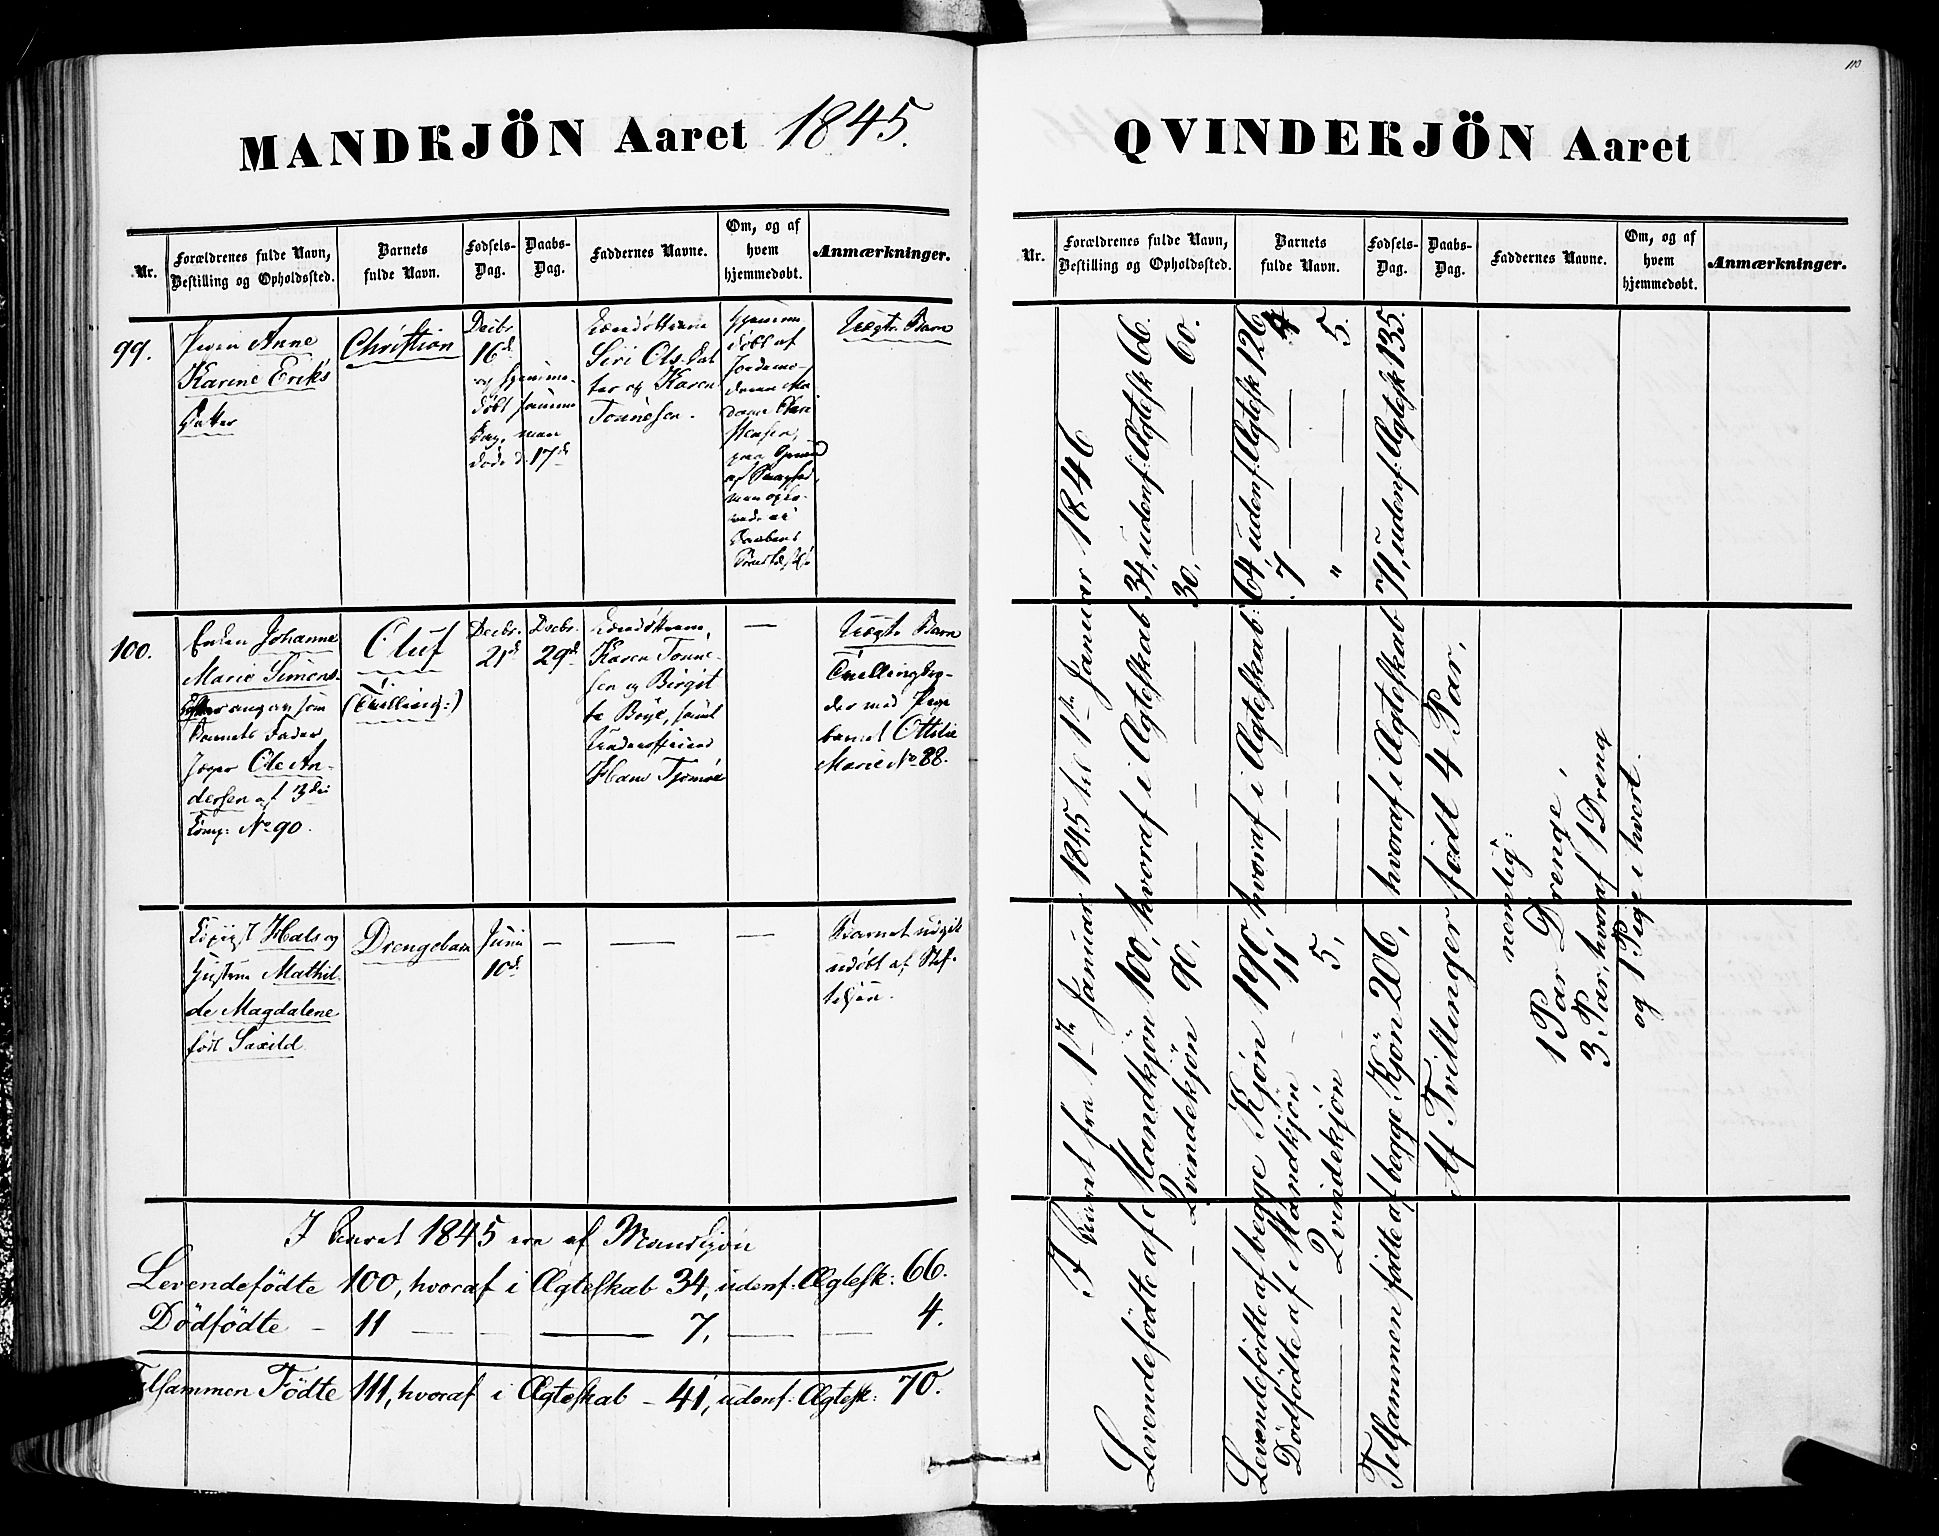 110
MANDKJÖN Aaret 1845.
Nr.
Forældrenes fulde Navn,
Bestilling og Opholdssted.
Barnets
fulde Navn.
Fødsels-
Dag.
Daabs-
Dag.
Faddernes Navne.
Om, og af
hvem
hjemmedøbt.
Anmærkninger.
99.
Pigen Anne
Karine Eriks
Datter
Christian
Decbr.
16d
og hjemme-
døbt samme
Dag, men
døde d. 17d
Siri Ols Dat
ter og Karen
Tonnesen.
Hjemme
døbt af
Jordemo-
deren Ma-
dame
Uægte Barn
100.
Enken Johanne
Marie Simens-
Datter angav som
Barnets Fader
Ole An-
dersen af 3die
Comp: No 90.
Oluf
(Tvilling:)
Decbr.
21d
Decbr.
29d
Karen Tonne-
sen og Birgit
te Boye, samt
Underofficeer
Hans
—
Uægte Barn
Tvillingbro-
der med Pige
barnet Ottilie
Marie No 88.
Hals og
Hustru Mathil-
de Magdalene
født Saxild
Drengebarn
Juni
10d
—
—
—
Barnet udgik
udöbt af Stif-
telsen.
I Aaret 1845 ere af Mandkjön
Levendefödte 100, hvoraf i Ægteskab 34, udenf: Ægtesk: 66.
Dödfödte - 11 — — 7, — — 4.
Tilsammen Födte 111, hvoraf i Ægteskab - 41, udenf: Ægtesk: 70.
QVINDERKJÖN Aaret
Nr.
Forældrenes fulde Navn,
Bestilling og Opholdssted.
Barnets
fulde Navn.
Fødsels-
Dag.
Daabs-
Dag.
Faddernes Navne.
Om, og af
hvem
hjemmedøbt.
Anmærkninger.
I Aaret fra 1ste Januar 1845 til 1ste Januar 1846
Levendefödte af Mandkjön 100, hvoraf i Ægteskab 34, udenf. Ægtesk 66.
— — Qvindekjön 90, — — 30, — 60.
Levendefödte af begge Kjön 190, hvoraf i Ægteskab: 64 udenf. Ægtesk 126
Dödfödte af Mandkjön - 11 — — 7 — 4
— Qvindekjön 5, — — " — 5.
Tilsammen födte af begge Kjön 206, hvoraf i Ægteskab 71, udenf. Ægtesk 135.
Af Tvillinger födt 4 Par,
nemlig:
1 Par Drenge,
3 Par, hvoraf 1 Dreng
og 1 Pige i hvert.